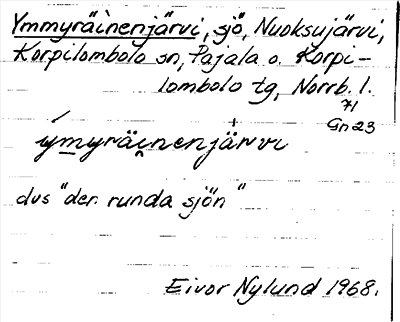 Ymmyräinenjärvi, sjö, Nuoksujärvi,
Korpilombolo sn, Pajala o. Korpi-
lombolo tg, Norrb. l.
71
Gn 23
ýmyräi̯nenjä̀rvi
dvs "den runda sjön"
Eivor Nylund 1968.